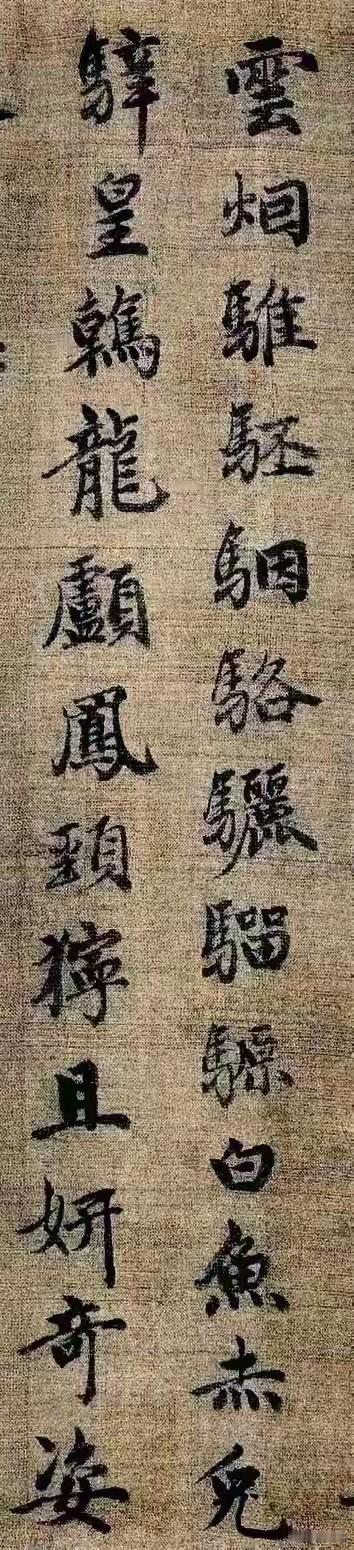 雲烟騅駓駰駱驪騮騵白魚赤兔
騂皇鶾龍顱鳳頸獰且妍奇姿